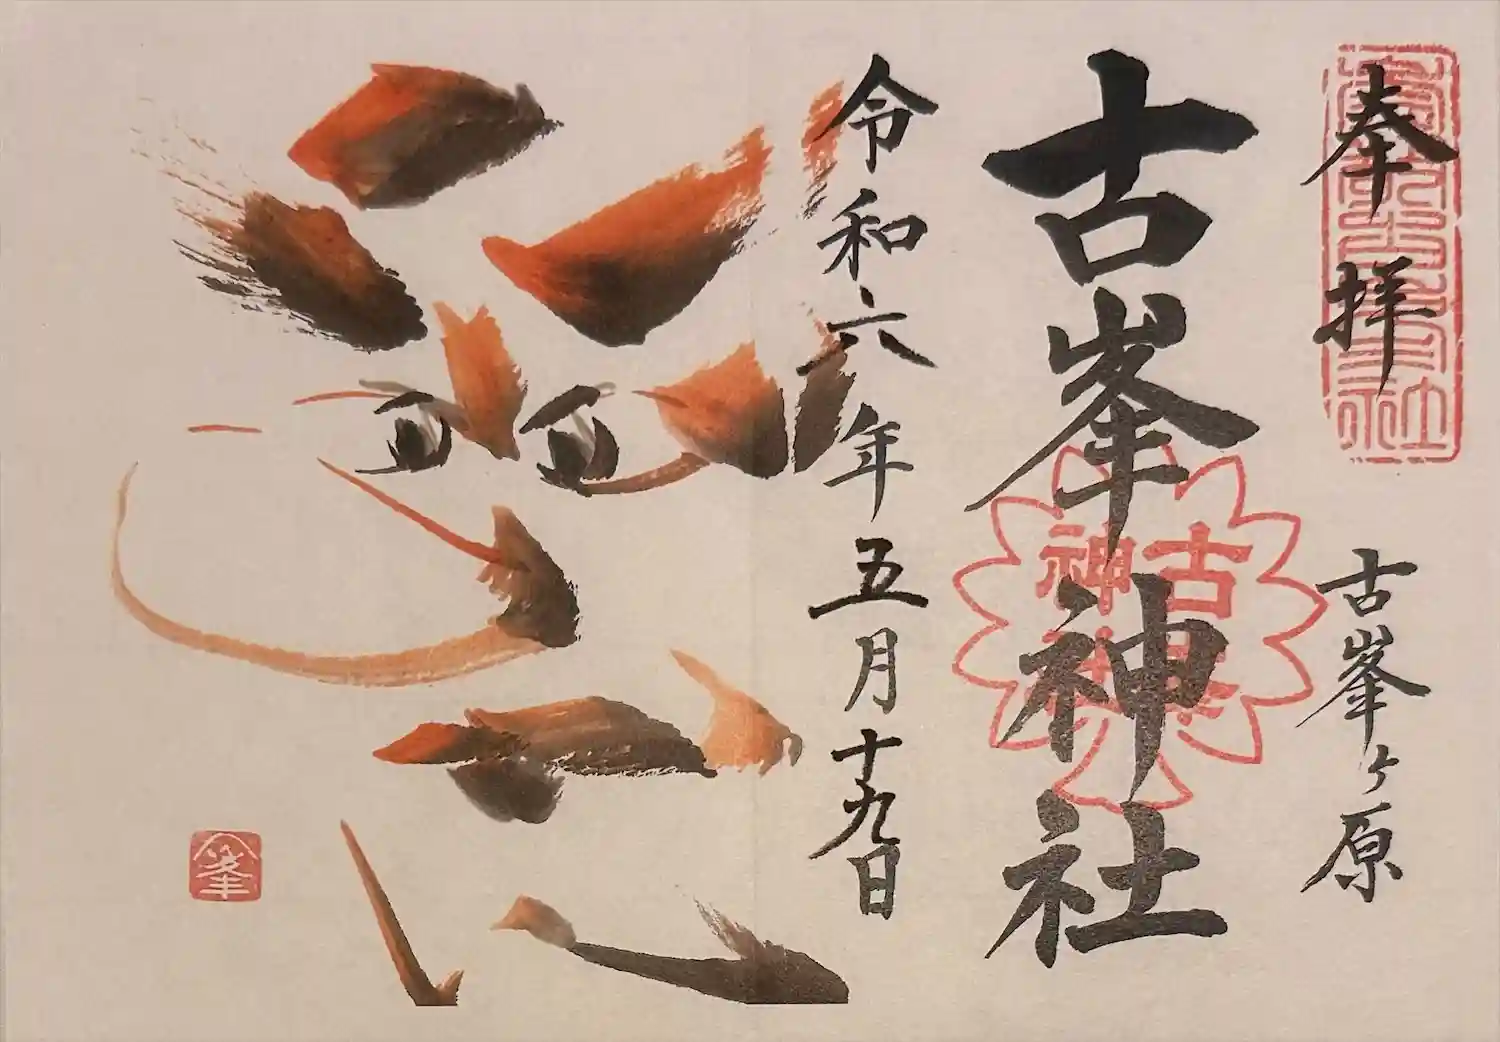 奉拝
古峯ヶ原
古峯神社
古
神
令和六年五月十九日
峯